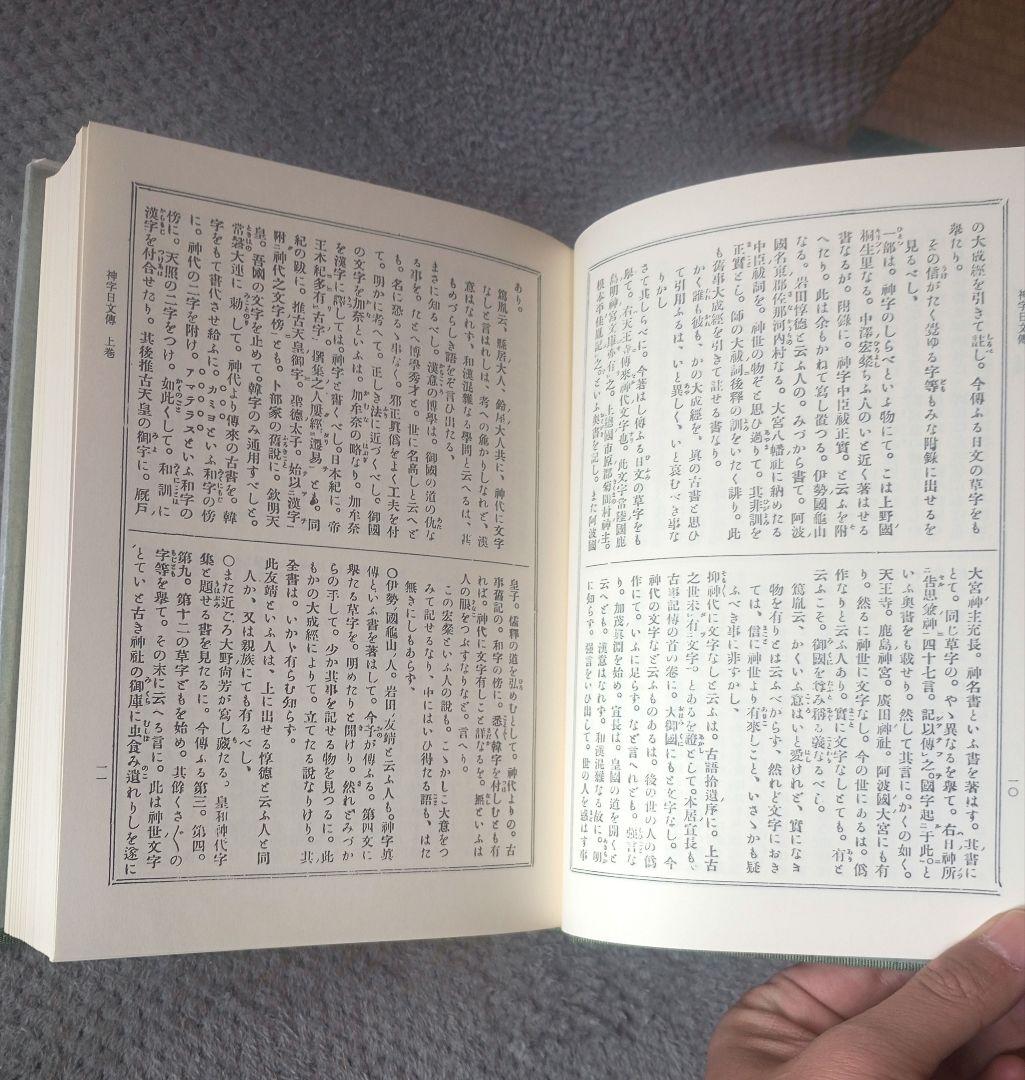 神字日文傳
一〇
の大成經を引きて註し。今傳ふる日文の草字をも
擧たり。
その信がたく覺ゆる字等もみな附錄に出せるを
見るべし、
一部は。神字のしらべといふ物にて。こは上野國
桐生里なる。中澤宏粲ちふ人のいと近く著はせる
書なるが。附錄に。神字中臣祓正實。と云ふを附
へたり。此は余もかねて寫し置つる。伊勢國龜山
なる。岩田惇德と云ふ人の。みづから書て。阿波
國名東郡佐那河內村なる。大宮八幡社に納めたる
中臣祓詞を。神世の物ぞと思ひ過りて。其非訓を
正實とし。師の大祓詞後釋の訓をいたく誹り。此
も舊事大成經を引きて註せる書なり。
かく誰も彼も、かの大成經を、眞の古書と思ひ
て引用ふるは、いと異しく、いと哀むべき事な
りかし
さて其しらべに。今著はし傳ふる日文の草字をも
擧て。右天王寺傳來神代文字也。此文字常陸國鹿
島明神宮文庫亦有之。上總國市原郡菊間村神主。
根本季佳眞記之。といふ奧書を記し。また阿波國
大宮神主充長。神名書といふ書を著はす。其書に
とて。同じ草字の。やゝ異なるを擧て。右日神所
告思兼神四十七言。記以傳之。國字起于此。と
いふ奧書をも載せり。然して其言に。かくの如く。
天王寺。鹿島神宮。廣田神社。阿波國大宮にも有
り。然るに神世に文字なし。今の世にあるは。僞
作なりと云ふ人あり。實に文字なしとても。有と
云ふこそ。御國を尊み稱る義なるべし。
篤胤云、かくいふ意はいと愛けれど、實になき
物を有りとは云ふべからず、然れど文字におき
ては、信に神世より有來しこと、いさゝかも疑
ふべき事に非ずかし、
抑神代に文字なしと云ふは。古語拾遺序に。上古
之世未有文字。とあるを證として。本居宣長も。
古事記傳の首の卷に。大御國にもと字なし。今
神代の文字など云ふものあるは。後の世の人の僞
作にて。いふに足らず。など言へれども。强言な
り。加茂眞淵を始め。宣長は。皇國の道を開くと
は云へども。漢意はなれず。和漢混雜なる故に。明
に知らず。强言をいひ出して。世の人を惑はす事
あり。
篤胤云、縣居大人、鈴屋大人共に、神代に文字
なしと言はれしは、考への麁かりしなれど、漢
意はなれず、和漢混雜なる學問と云へるは、甚
もめづらしき語をぞ言ひ出たる、
まさに知るべし。漢意の博學は。御國の道の仇な
る事を。たとへ博學秀才と。世に名高しと云へど
も。名に恐るゝ事なく。邪正眞僞をよく工夫を付
て。明かに考へて。正しき法に近づくべし。御國
の文字を加奈といふは。加牟奈の略なり。加牟奈
を漢字に譯しては。神字と書くべし。日本紀に。帝
王本紀多有古字。撰集之人屢經遷易とも。同
紀の跋に。推古天皇御字。聖德太子。始以漢字
附神代之文字傍とも。卜部家の舊說に。欽明天
皇。吾國の文字を止めて。韓字のみ通用すべしと。
常磐大連に勅して。神代より傳來の古書を。韓
字をもて書代させ給ふに。カミヨといふ和字の傍
に。神代の二字を附け。アマテラスといふ和字の
傍に。天照の二字をつけ。如此くして。和訓に
漢字を付合せたり。其後推古天皇の御字に。厩戶
皇子。儒釋の道を弘めむとして。神代よりの。古
事舊記の。和字の傍に。悉く韓字を付しむとも有
れば。神代に文字有しこと詳なるを。無といふは
人の眼をつぶすなりなど。言へり。
この宏粲といふ人の說も。こゝかしこ大意をつ
みて記せるなり、中にはいひ得たる語も、はた
無きにしもあらず、
○伊勢ノ國龜山ノ人。岩田ノ友靖と云ふ人も。神字眞
傳といふ書を著はして。今予が傳ふる。第四文に
擧たる草字を。明めたりと聞けり。然れどみづか
らの示して。少か其事を記せる物を見つるに。此
もかの大成經によりて。立てたる說なりけり。其
全書は。いかゞ有らむ知らず。
此友靖といふ人は、上に出せる惇德と云ふ人と同
人か、又は親族にても有るべし、
○また近ごろ大野尙芳が寫し藏たる。皇和神代字
集と題せる書を見たるに。今傳ふる第三。第四。
第九。第十二の草字どもを始め。其餘くさ〴〵の
字等を擧て。その末に云へる言に。此は神世文字
とていと古き神社の御庫に虫食み遺れりしを遂に
神字日文傳 上卷
一一